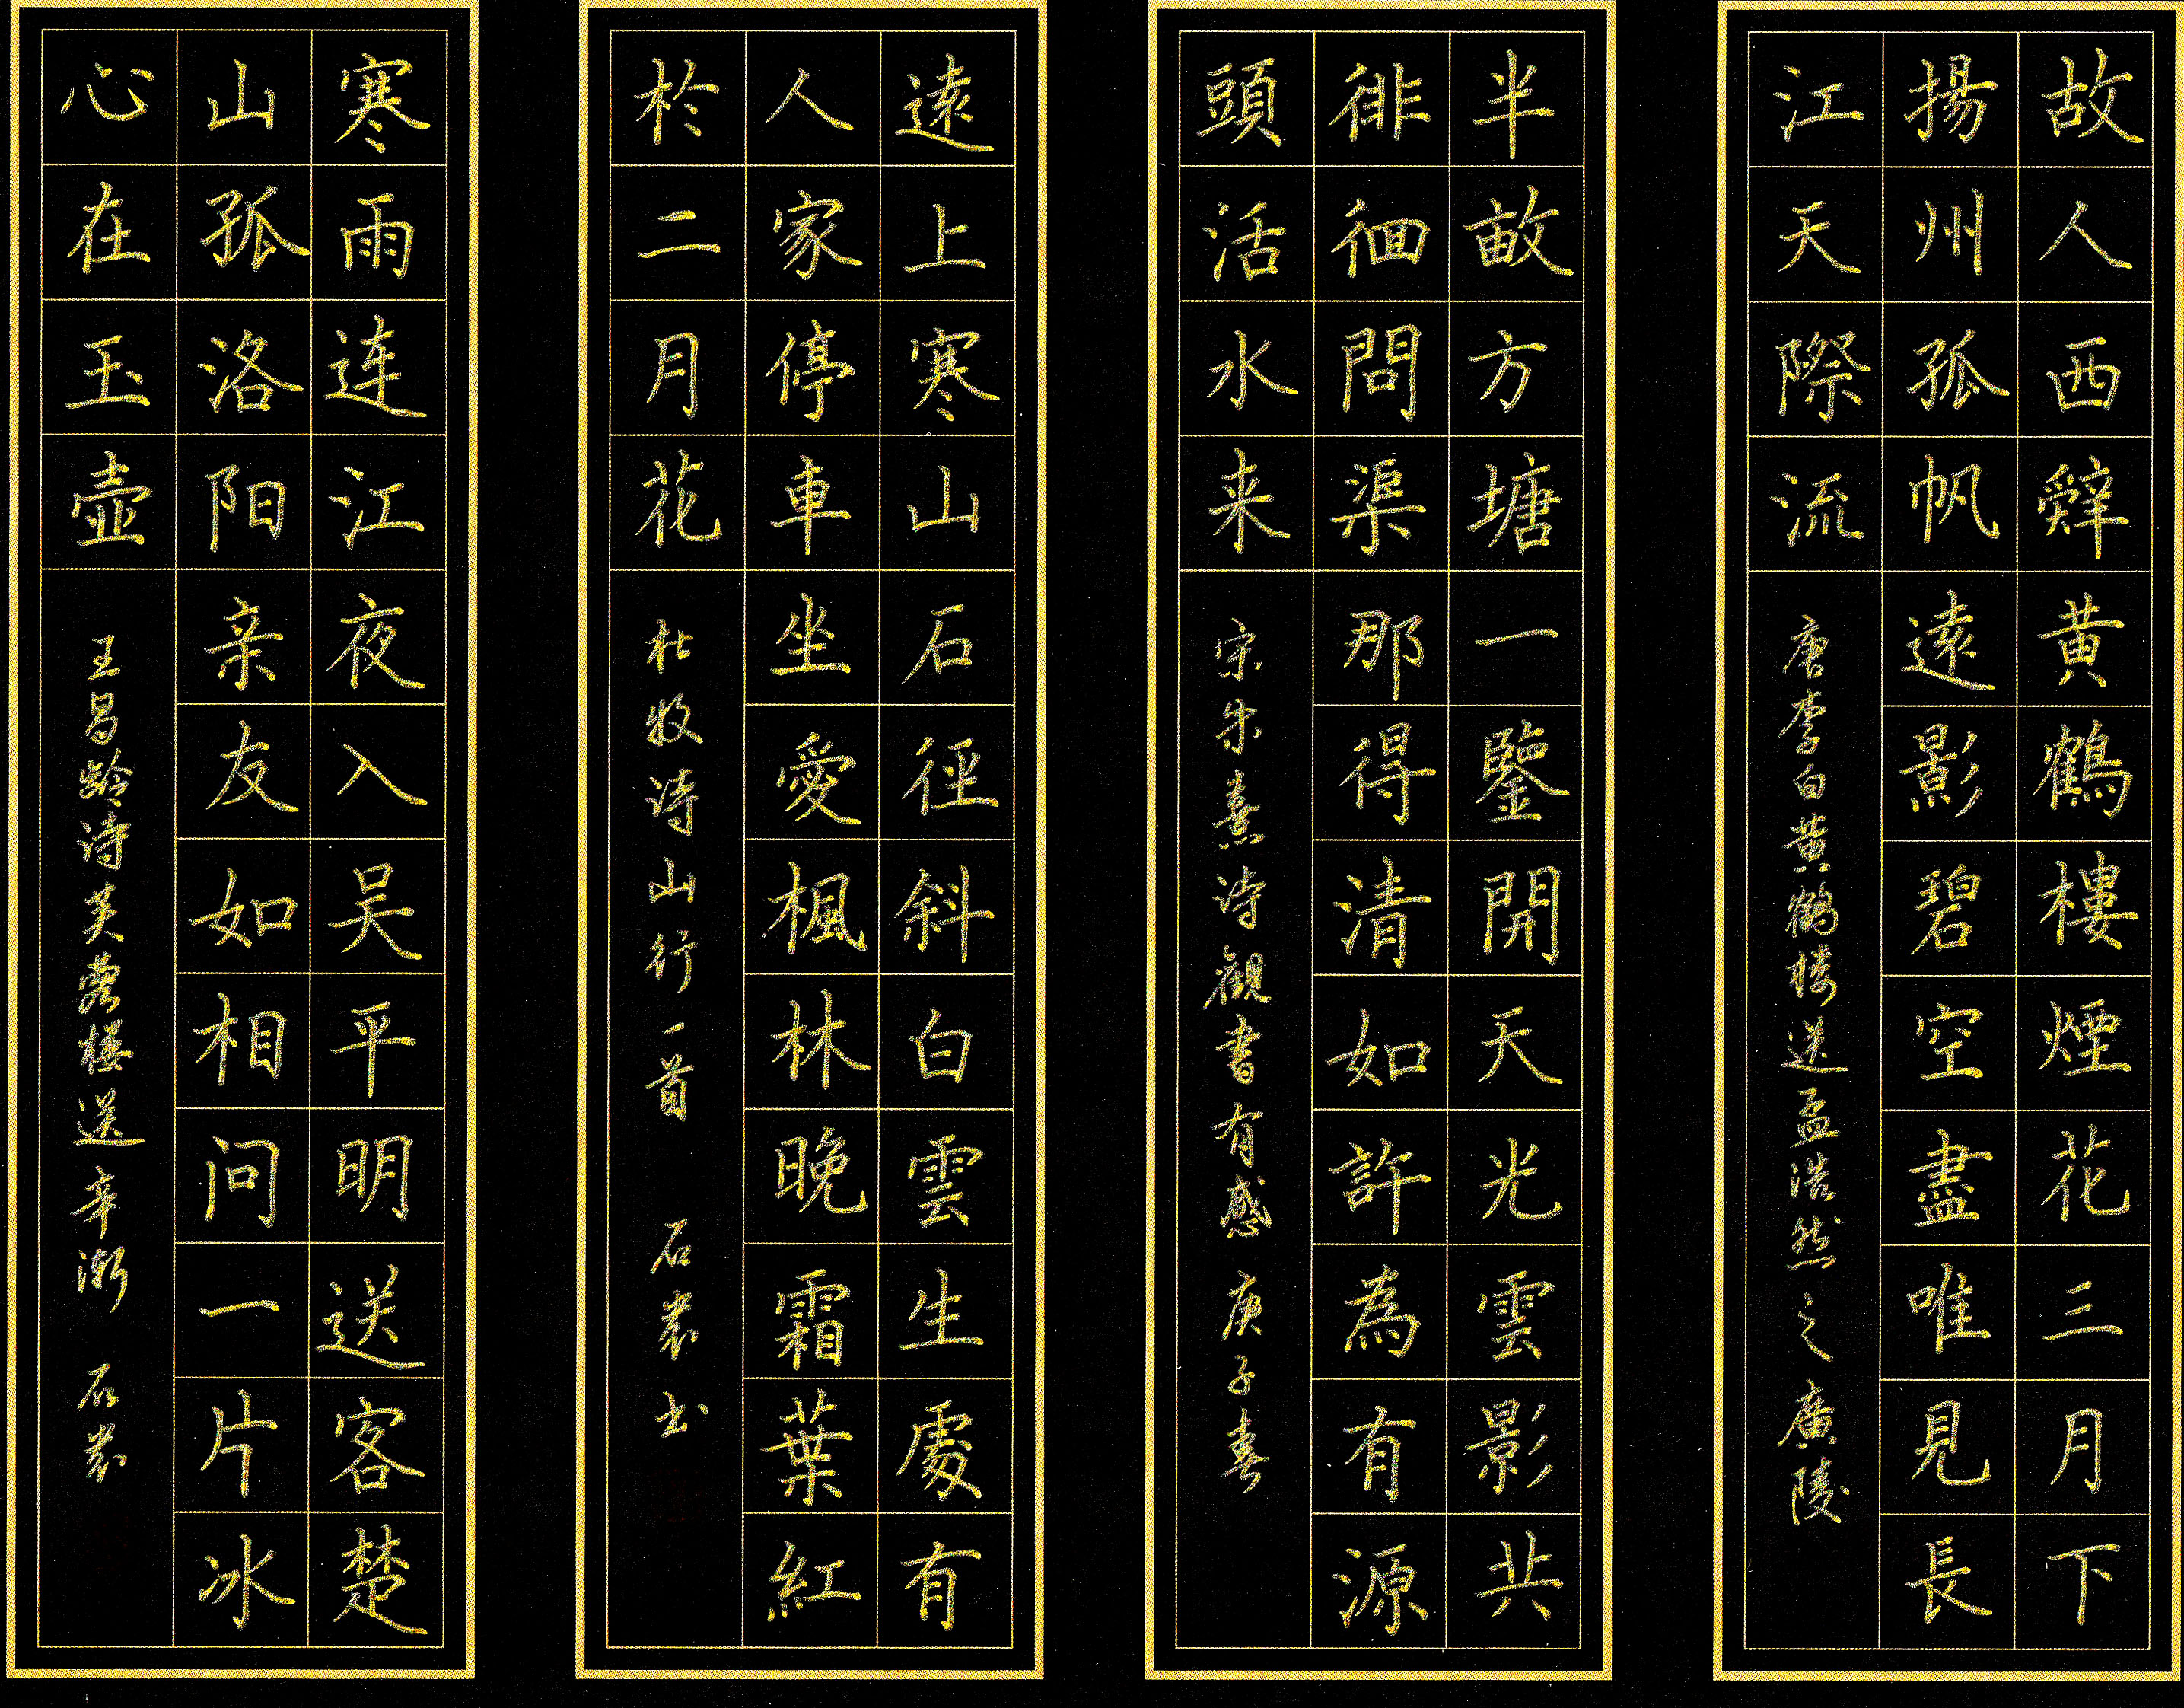 故人西辤黄鶴樓煙花三月下
揚州孤帆遠影碧空盡唯見長
江天際流
唐李白黄鶴楼送孟浩然之廣陵
半畝方塘一鑒開天光雲影共
徘徊問渠那得清如許為有源
頭活水来
宋朱熹诗觀書有感 庚子春
遠上寒山石徑斜白雲生處有
人家停車坐愛楓林晚霜葉紅
於二月花
杜牧诗山行一首 石裳书
寒雨连江夜入吴平明送客楚
山孤洛阳亲友如相问一片冰
心在玉壶
王昌龄诗芙蓉楼送辛渐 石裳